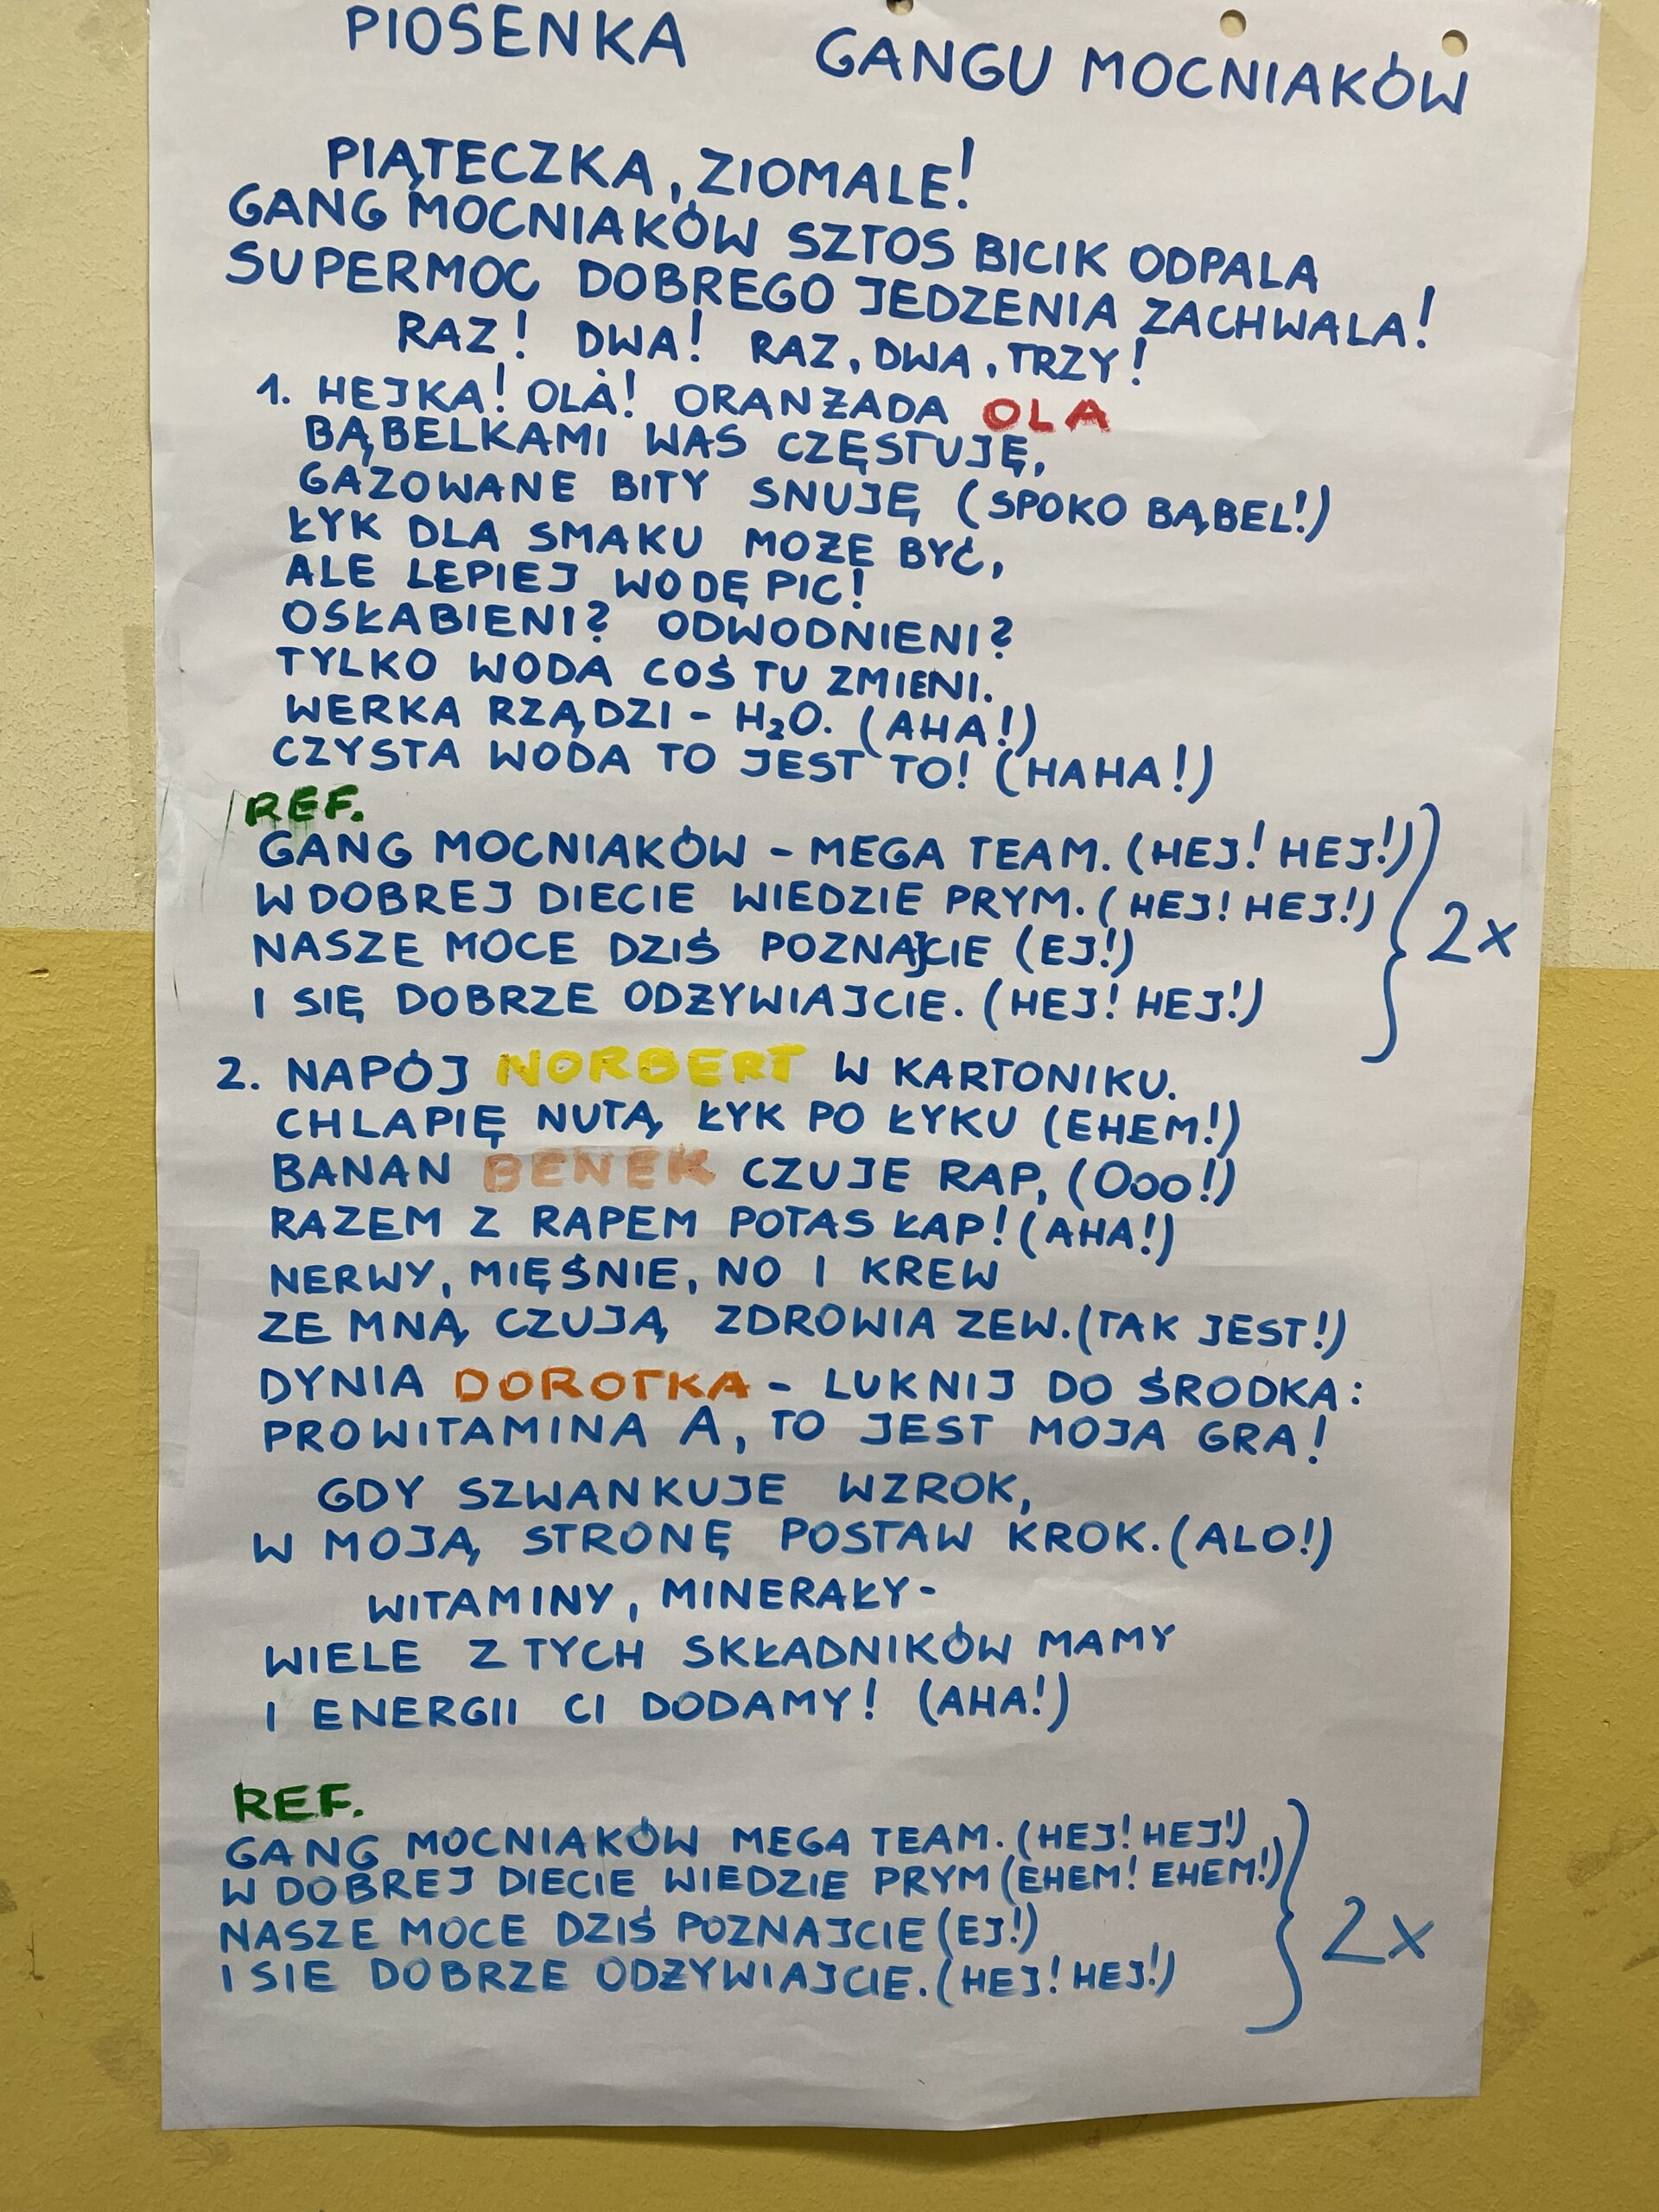 PIOSENKA GANGU MOCNIAKÓW
PIĄTECZKA, ZIOMALE!
GANG MOCNIAKÓW SZTOS BICIK ODPALA
SUPERMOC DOBREGO JEDZENIA ZACHWALA!
RAZ! DWA! RAZ, DWA, TRZY!
1. HEJKA! OLA! ORANŻADA OLA
BĄBELKAMI WAS CZĘSTUJĘ,
GAZOWANE BITY SNUJĘ (SPOKO BĄBEL!)
ŁYK DLA SMAKU MOŻE BYĆ,
ALE LEPIEJ WODĘ PIĆ!
OSŁABIENI? ODWODNIENI?
TYLKO WODA COŚ TU ZMIENI.
WERKA RZĄDZI - H₂O. (AHA!)
CZYSTA WODA TO JEST TO! (HAHA!)
REF.
GANG MOCNIAKÓW - MEGA TEAM. (HEJ! HEJ!)
W DOBREJ DIECIE WIEDZIE PRYM. (HEJ! HEJ!)
NASZE MOCE DZIŚ POZNAJCIE (EJ!)
I SIĘ DOBRZE ODŻYWIAJCIE. (HEJ! HEJ!)
2x
2. NAPÓJ NORBERT W KARTONIKU.
CHLAPIĘ NUTĄ ŁYK PO ŁYKU (EHEM!)
BANAN BENEK CZUJE RAP, (Ooo!)
RAZEM Z RAPEM POTAS ŁAP! (AHA!)
NERWY, MIĘŚNIE, NO I KREW
ZE MNĄ CZUJĄ ZDROWIA ZEW. (TAK JEST!)
DYNIA DOROTKA - LUKNIJ DO ŚRODKA:
PROWITAMINA A, TO JEST MOJA GRA!
GDY SZWANKUJE WZROK,
W MOJĄ STRONĘ POSTAW KROK. (ALO!)
WITAMINY, MINERAŁY-
WIELE Z TYCH SKŁADNIKÓW MAMY
I ENERGII CI DODAMY! (AHA!)
REF.
GANG MOCNIAKÓW MEGA TEAM. (HEJ! HEJ!)
W DOBREJ DIECIE WIEDZIE PRYM (EHEM! EHEM!)
NASZE MOCE DZIŚ POZNAJCIE (EJ!)
I SIE DOBRZE ODŻYWIAJCIE. (HEJ! HEJ!)
2x